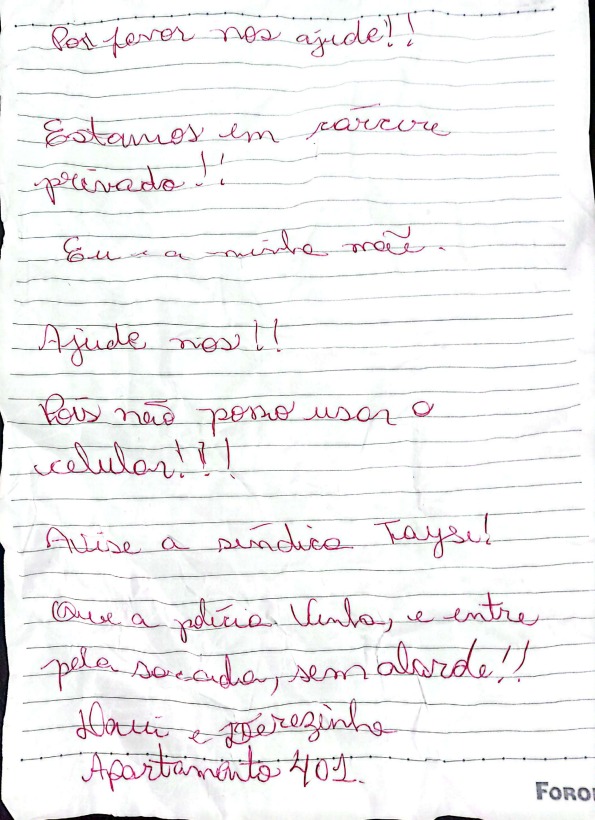 Por favor nos ajude!!
Estamos em cárcere
privado!!
Eu e a minha mãe.
Ajude nos!!
Pois não posso usar o
celular!!!
Avise a síndica Tayse!
Que a polícia. Venha, e entre
pela sacada, sem alarde!!
e Terezinha
Apartamento 401.
FORON